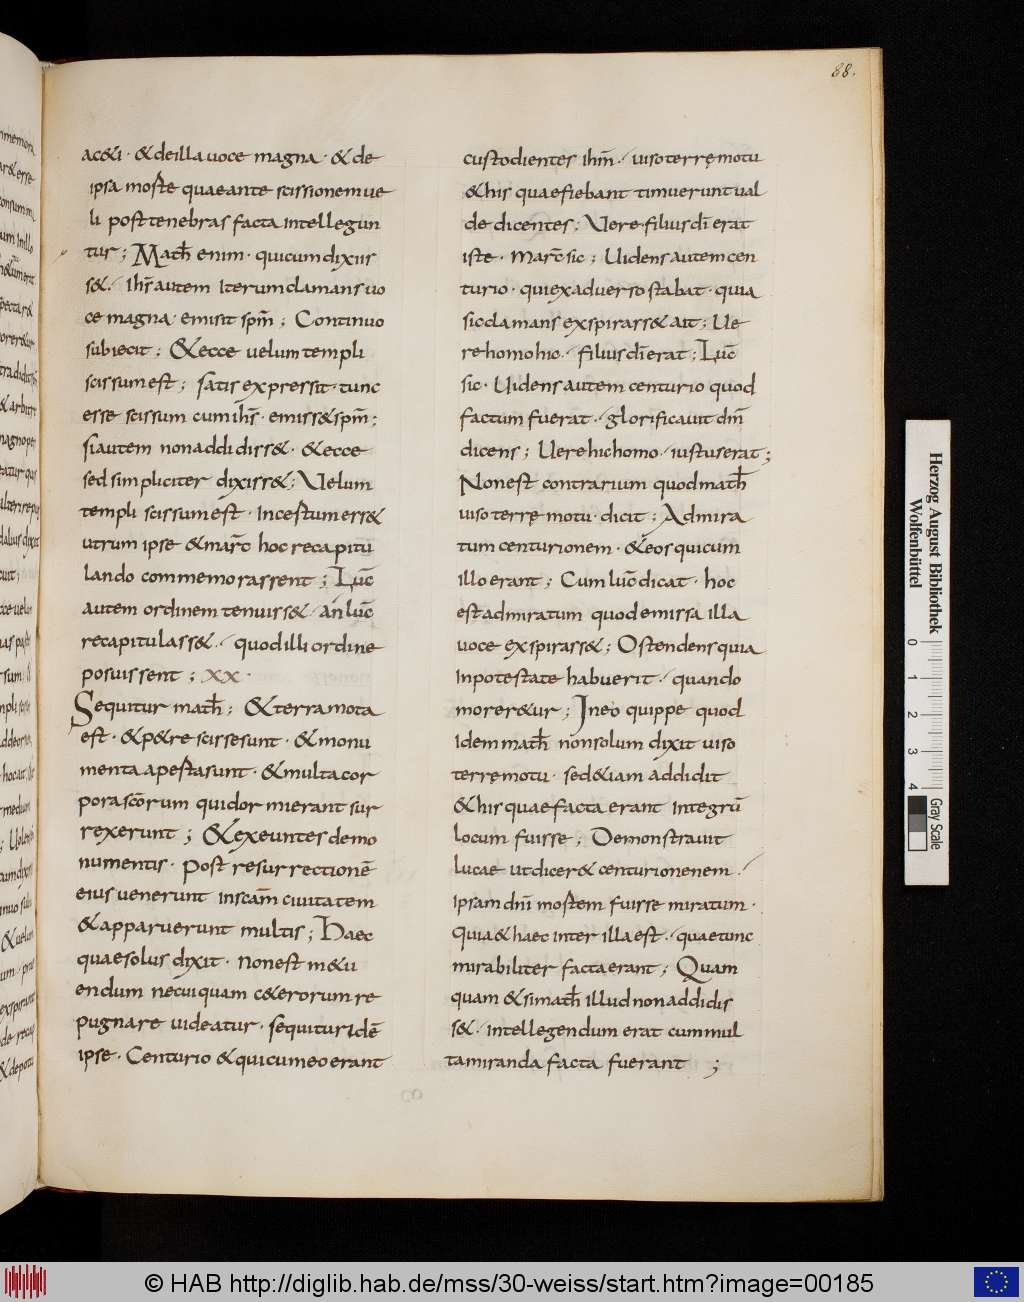 88.
ac&i · & de illa uoce magna · & de
ipsa morte quae ante scissionem ue
li post tenebras facta intellegun
tur ; Math̄ enim · quicum dixiis
s& · ihs̄ autem iterum clamans uo
ce magna · emisit spm̄ ; Continuo
subiecit ; & ecce uelum templi
scissum est ; satis expressit · tunc
esse scissum cum ihs̄ · emiss& spm̄ ;
si autem non addidiss& · & ecce
sed simpliciter dixiss& ; Uelum
templi scissum est · incestum ess&
utrum ipse & marc̄ hoc recapitu
lando commemorassent ; Luc̄
autem ordinem tenuiss& · an luc̄
recapitulass& · quod illi ordine
posuissent ; xx ·
Sequitur math̄ ; & terra mota
est · & p&re scisse sunt · & monu
menta apesta sunt · & multa cor
pora scōrum qui dormierant sur
rexerunt ; & exeuntes de mo
numentis · post resurrectionē
eius uenerunt in scam̄ ciuitatem
& apparuerunt multis ; Haec
quae solus dixit · non est m&u
endum ne cuiquam c&erorum re
pugnare uideatur · sequitur idē
ipse · Centurio & qui cum eo erant
custodientes ihm̄ · uiso terrę motu
& his quae fiebant timuerunt ual
de dicentes ; Uere filius dī erat
iste · marc̄ sic ; Uidens autem cen
turio · qui ex aduerso stabat · quia
sic clamans exspirass& ait ; Ue
re homo hic · filius dī erat ; Luc̄
sic · Uidens autem centurio quod
factum fuerat · glorificauit dm̄
dicens ; Uere hic homo · iustus erat ;
Non est contrarium quod math̄
uiso terrę motu · dicit ; Admira
tum centurionem · & eos qui cum
illo erant ; Cum luc̄ dicat · hoc
est admiratum quod emissa illa
uoce exspirass& ; Ostendens quia
in potestate habuerit · quando
morer&ur ; In eo quippe quod
idem math̄ non solum dixit uiso
terrę motu · sed &iam addidit
& his quae facta erant integrū
locum fuisse ; Demonstrauit
lucae ut dicer& centurionenem ·
ipsam dnī mortem fuisse miratum ·
quia & haec inter illa est · quae tunc
mirabiliter facta erant ; Quam
quam & si math̄ illud non addidis
s& · intellegendum erat cum mul
ta miranda facta fuerant ;
Herzog August Bibliothek
Wolfenbüttel
0 1 2 3 4
Gray Scale
© HAB http://diglib.hab.de/mss/30-weiss/start.htm?image=00185